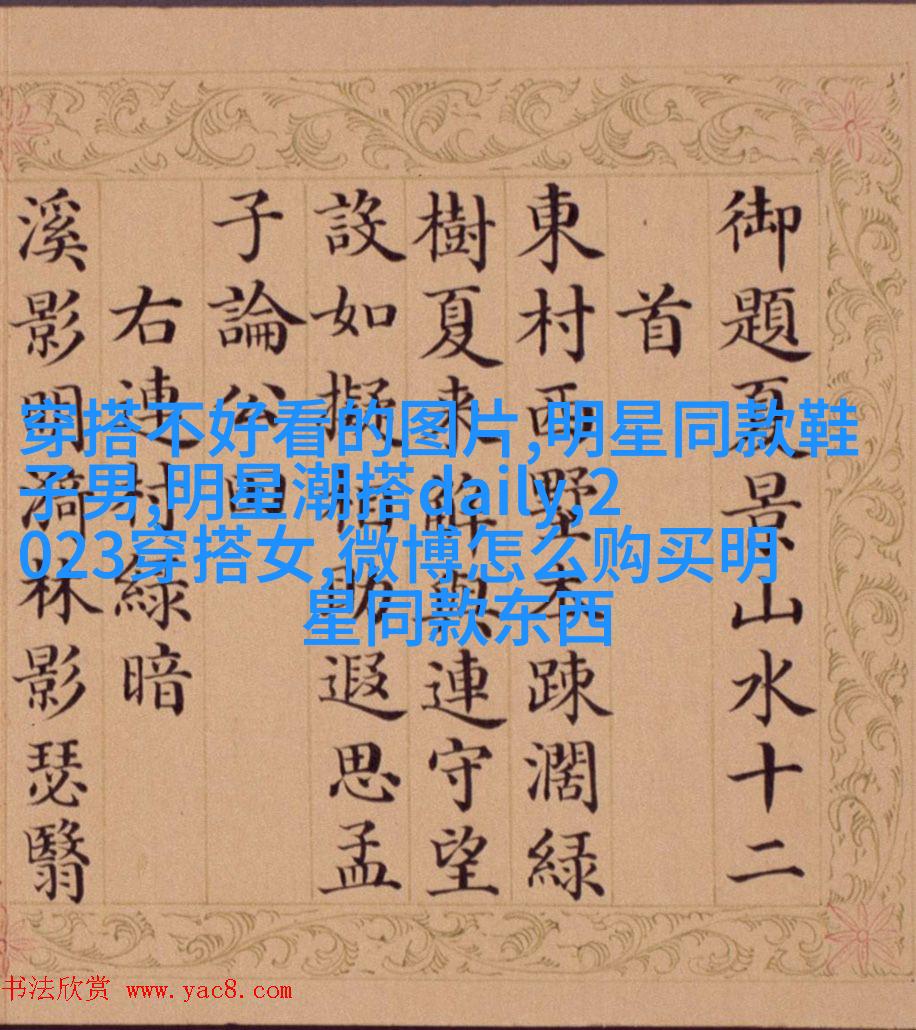 御題夏景山水十二
首
東村西墅本疎濶緑
樹夏来解與連守望
設如擬借助遐思孟
子論公田
右連村緑暗
溪影明漪林影瑟翳
穿搭不好看的图片,明星同款鞋
子男,明星潮搭daily,2
023穿搭女,微博怎么购买明
星同款东西
书法欣赏 www.yac8.com